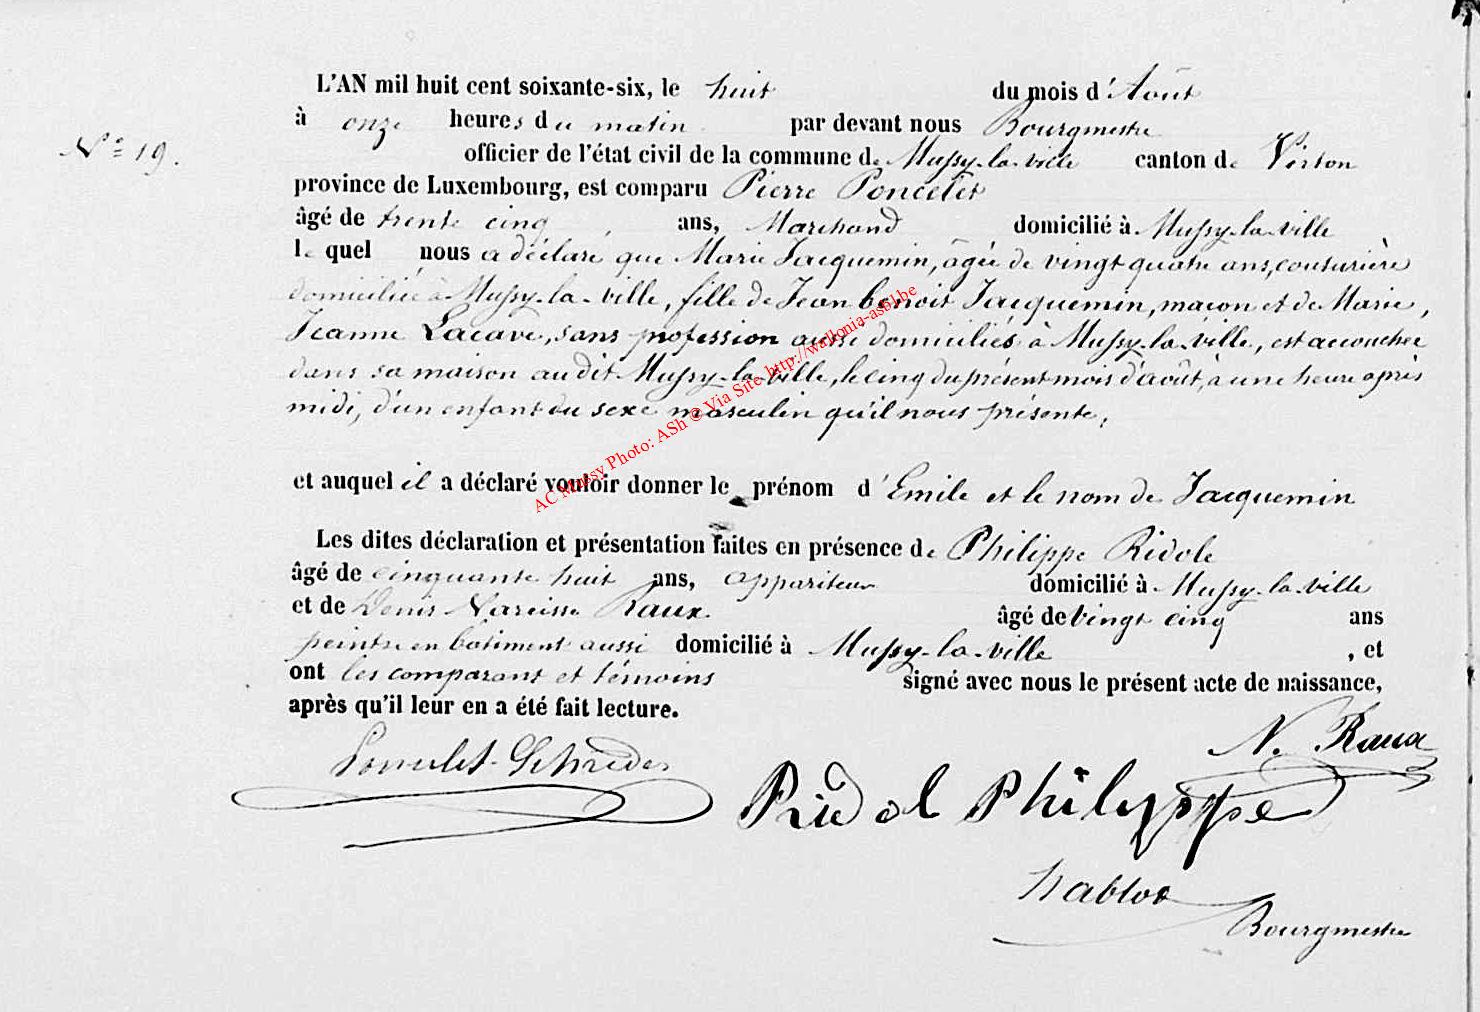 L'AN mil huit cent soixante-six, le huit du mois d'Août
à onze heures du matin par devant nous Bourgmestre
Nº 19.
officier de l'état civil de la commune de Mussy-la-ville canton de Virton
province de Luxembourg, est comparu Pierre Poncelet
âgé de trente cinq ans, Marchand domicilié à Mussy-la-ville
le quel nous a déclaré que Marie Jacquemin, âgée de vingt quatre ans, couturière
domiciliée à Mussy-la-ville, fille de Jean benoit Jacquemin, maçon et de Marie,
Jeanne Lacave, sans profession aussi domiciliés à Mussy-la-ville, est accouchée
dans sa maison audit Mussy-la-ville, le cinq du présent mois d'août, à une heure après
midi, d'un enfant du sexe masculin qu'il nous présente,
et auquel il a déclaré vouloir donner le prénom d'Emile et le nom de Jacquemin
Les dites déclaration et présentation faites en présence de Philippe Ridole
âgé de cinquante huit ans, appariteur domicilié à Mussy-la-ville
et de Denis Narcisse Raux âgé de vingt cinq ans
peintre en bâtiment aussi domicilié à Mussy-la-ville, et
ont les comparant et témoins signé avec nous le présent acte de naissance,
après qu'il leur en a été fait lecture.
N. Raux
Poncelet-Schréder
Ridol Philippe
habloz
Bourgmestre
AC Mussy Photo: ASh @ Via Site http://wallonia-asbl.be